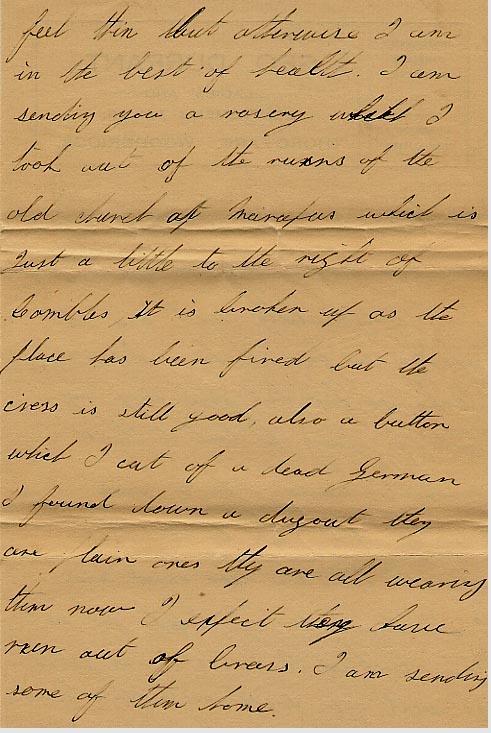 feel thin but otherwise I am
in the best of healt. I am
sending you a rosery which I
took out of the ruins of the
old church at Marapas which is
Just a little to the right of
Combles it is broken up as the
place has been fired but the
cross is still good, also a button
which I cut of a dead German
I found down a dugout they
are plain ones they are all wearing
them now I expect they have
run out of brass. I am sending
some of them home.